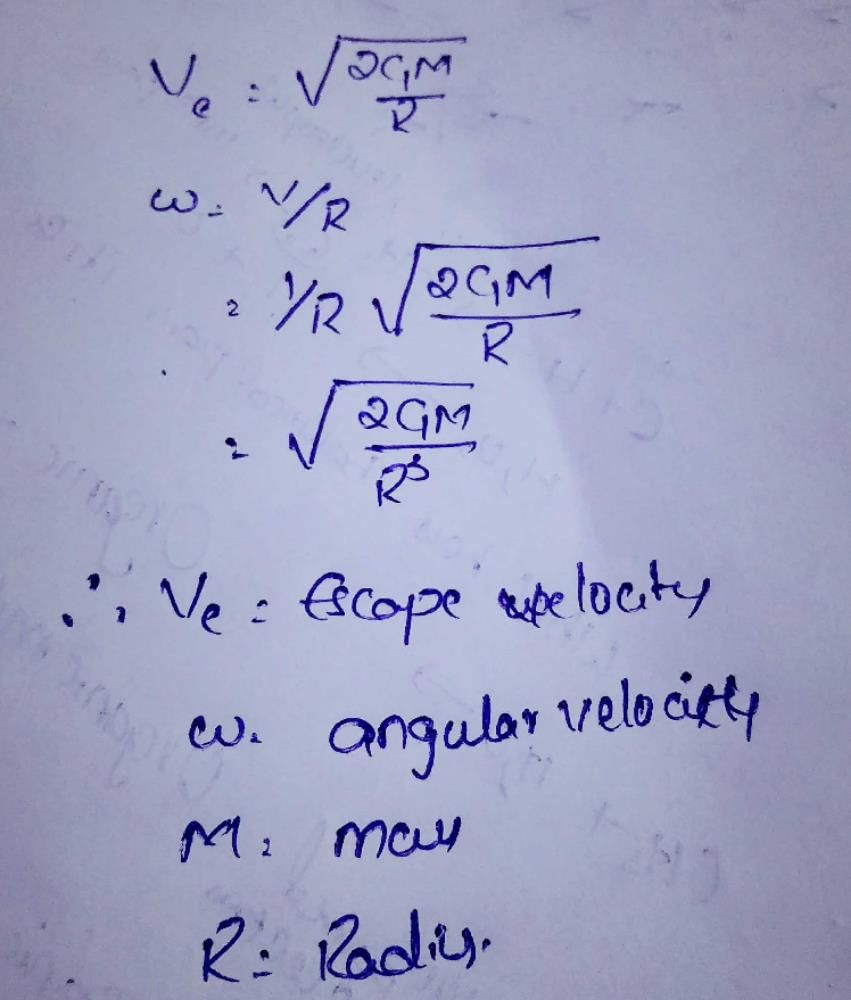 Ve = √(2GM/R)
ω = V/R
= 1/R √(2GM/R)
= √(2GM/R³)
∴ Ve = Escape velocity
ω = angular velocity
M = mass
R = Radius.